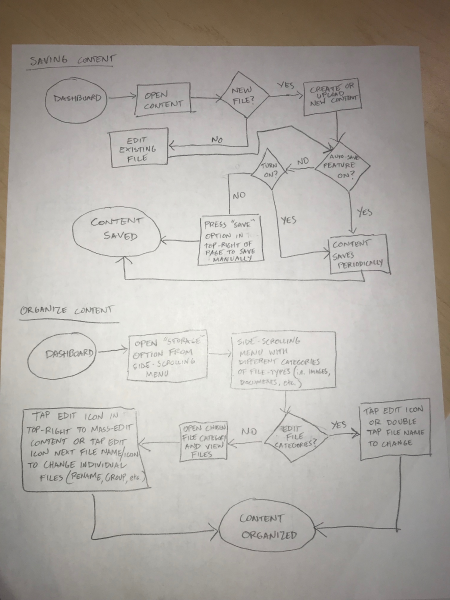 SAVING CONTENT
DASHBOARD
OPEN
CONTENT
NEW
FILE?
YES
CREATE OR
UPLOAD
NEW CONTENT
NO
EDIT
EXISTING
FILE
AUTO-SAVE
FEATURE
ON?
NO
TURN
ON?
NO
YES
YES
PRESS "SAVE"
OPTION IN
TOP-RIGHT OF
PAGE TO SAVE
MANUALLY
CONTENT
SAVES
PERIODICALLY
CONTENT
SAVED
ORGANIZE CONTENT
DASHBOARD
OPEN "STORAGE"
OPTION FROM
SIDE-SCROLLING
MENU
SIDE-SCROLLING
MENU WITH
DIFFERENT CATEGORIES
OF FILE-TYPES (i.e. IMAGES,
DOCUMENTS, ETC.)
EDIT
FILE
CATEGORIES?
YES
TAP EDIT ICON
OR DOUBLE
TAP FILE NAME
TO CHANGE
NO
OPEN CHOSEN
FILE CATEGORY
AND VIEW
FILES
TAP EDIT ICON IN
TOP-RIGHT TO MASS-EDIT
CONTENT OR TAP EDIT
ICON NEXT FILE NAME/ICON
TO CHANGE INDIVIDUAL
FILES (RENAME, GROUP, etc.)
CONTENT
ORGANIZED